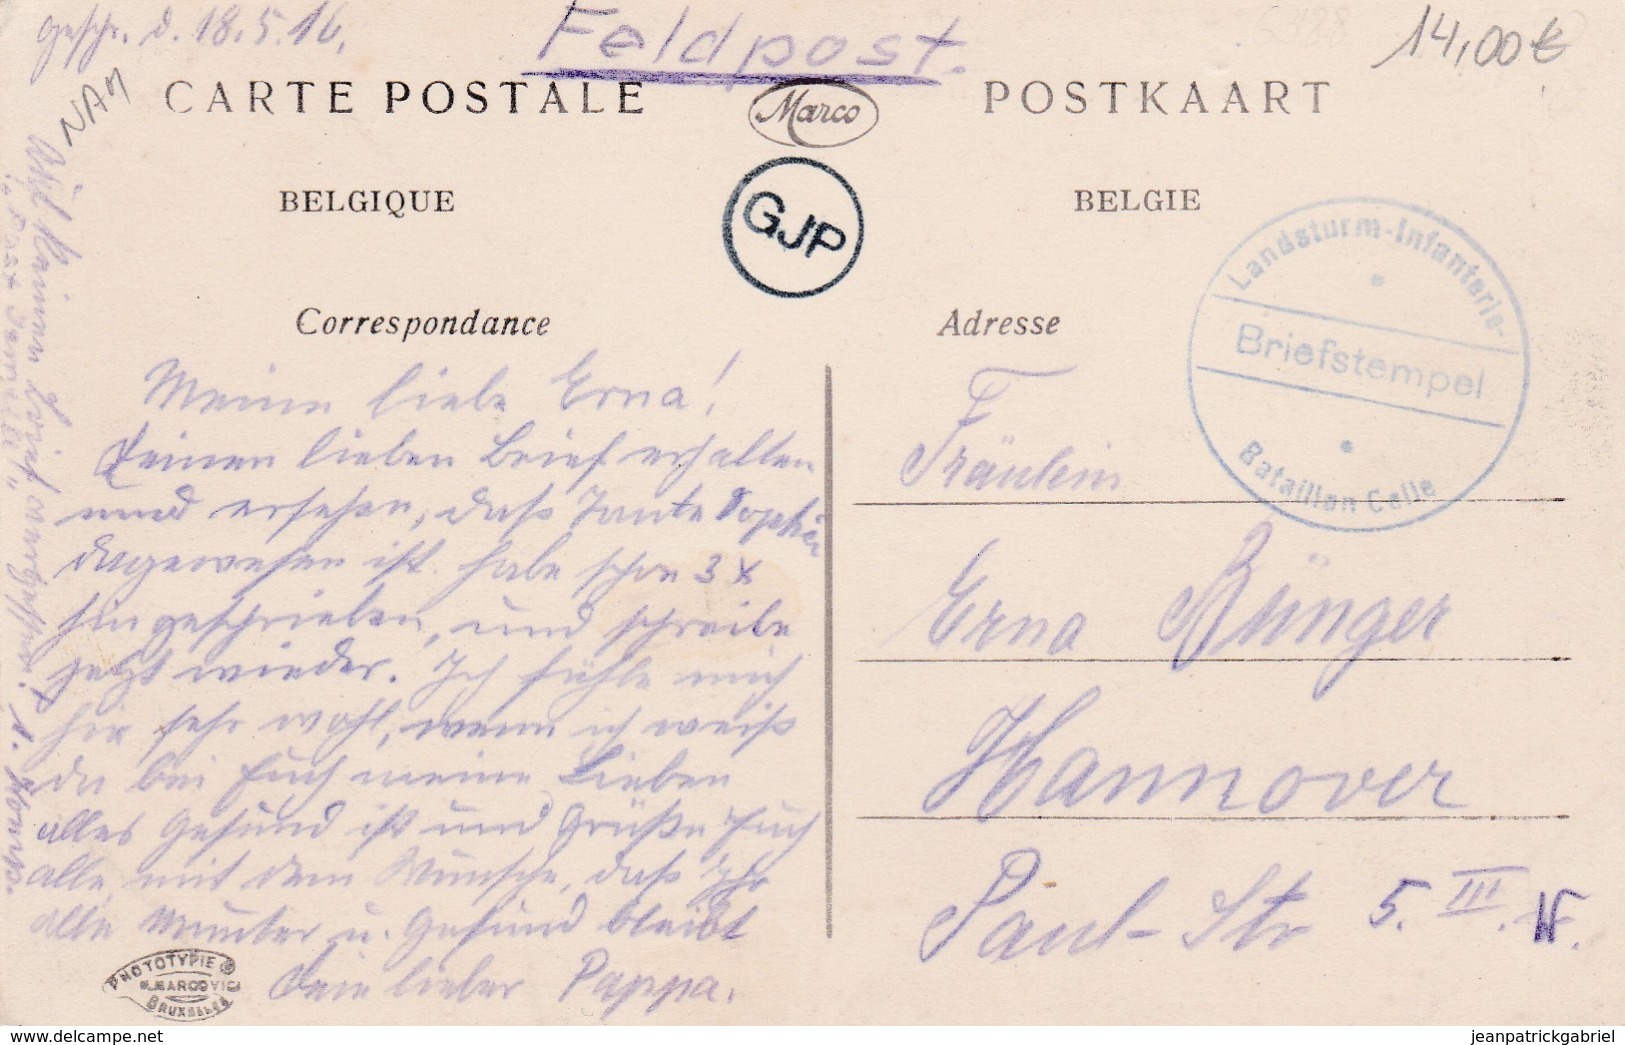 geschr. d. 18.5.16.
Feldpost.
14,00€
NAM
CARTE POSTALE
Marco
POSTKAART
BELGIQUE
GJP
BELGIE
Landsturm-Infanterie-
Briefstempel
Bataillon Celle
Correspondance
Adresse
Meine liebe Erna!
Deinen lieben Brief erhalten
und ersehen, daß Tante Sophie
dagewesen ist. habe schon 3 x
hingeschrieben, und schreibe
jetzt wieder. Ich fühle mich
hier sehr wohl, wenn ich weiß
du bei Euch meine Lieben
alles Gesund ist und Grüße Euch
alle, mit dem Wunsche, daß Ihr
alle Munter u. Gesund bleibt
Dein lieber Pappa.
Fräulein
Erna Bünger
Hannover
Paul-Str 5. III. N.
Brief vergessen! 1. Komp.
PHOTOTYPIE
MARCOVICI
BRUXELLES
delcampe.net
jeanpatrickgabriel